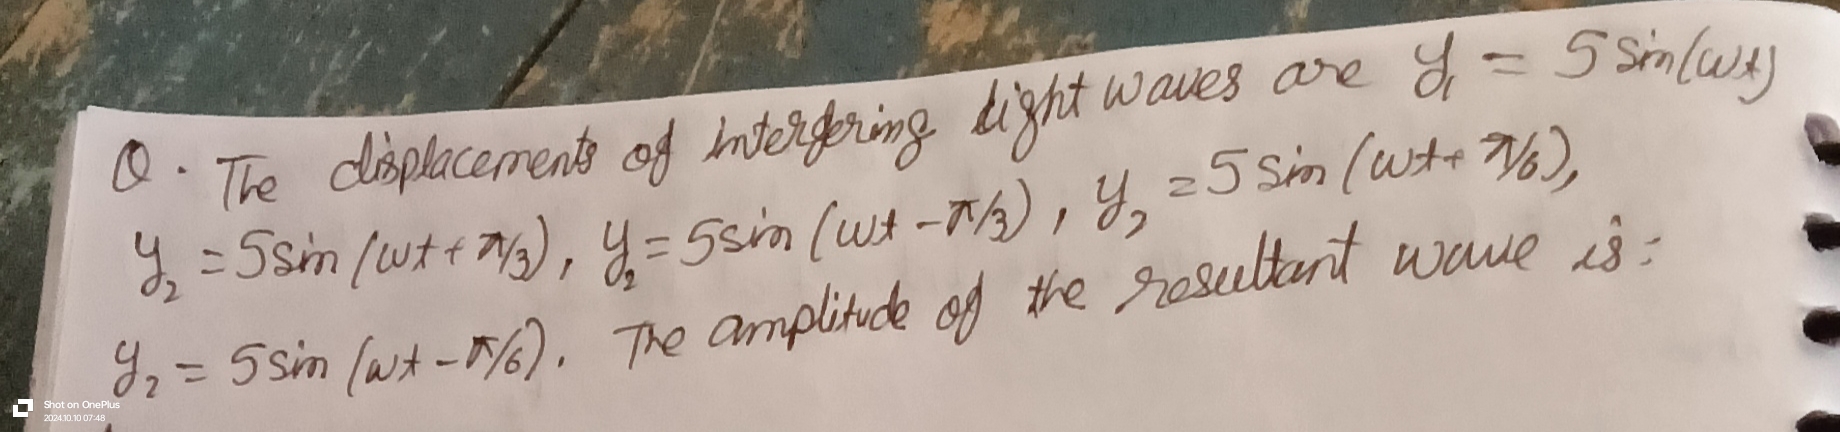 Q. The displacements of interfering light waves are y₁ = 5 sin(ωt)
y₂ = 5 sin (ωt + π/3), y₂ = 5 sin (ωt - π/3), y₂ = 5 sin (ωt + π/6),
y₂ = 5 sin (ωt - π/6). The amplitude of the resultant wave is:
Shot on OnePlus
2024.10.10 07:48